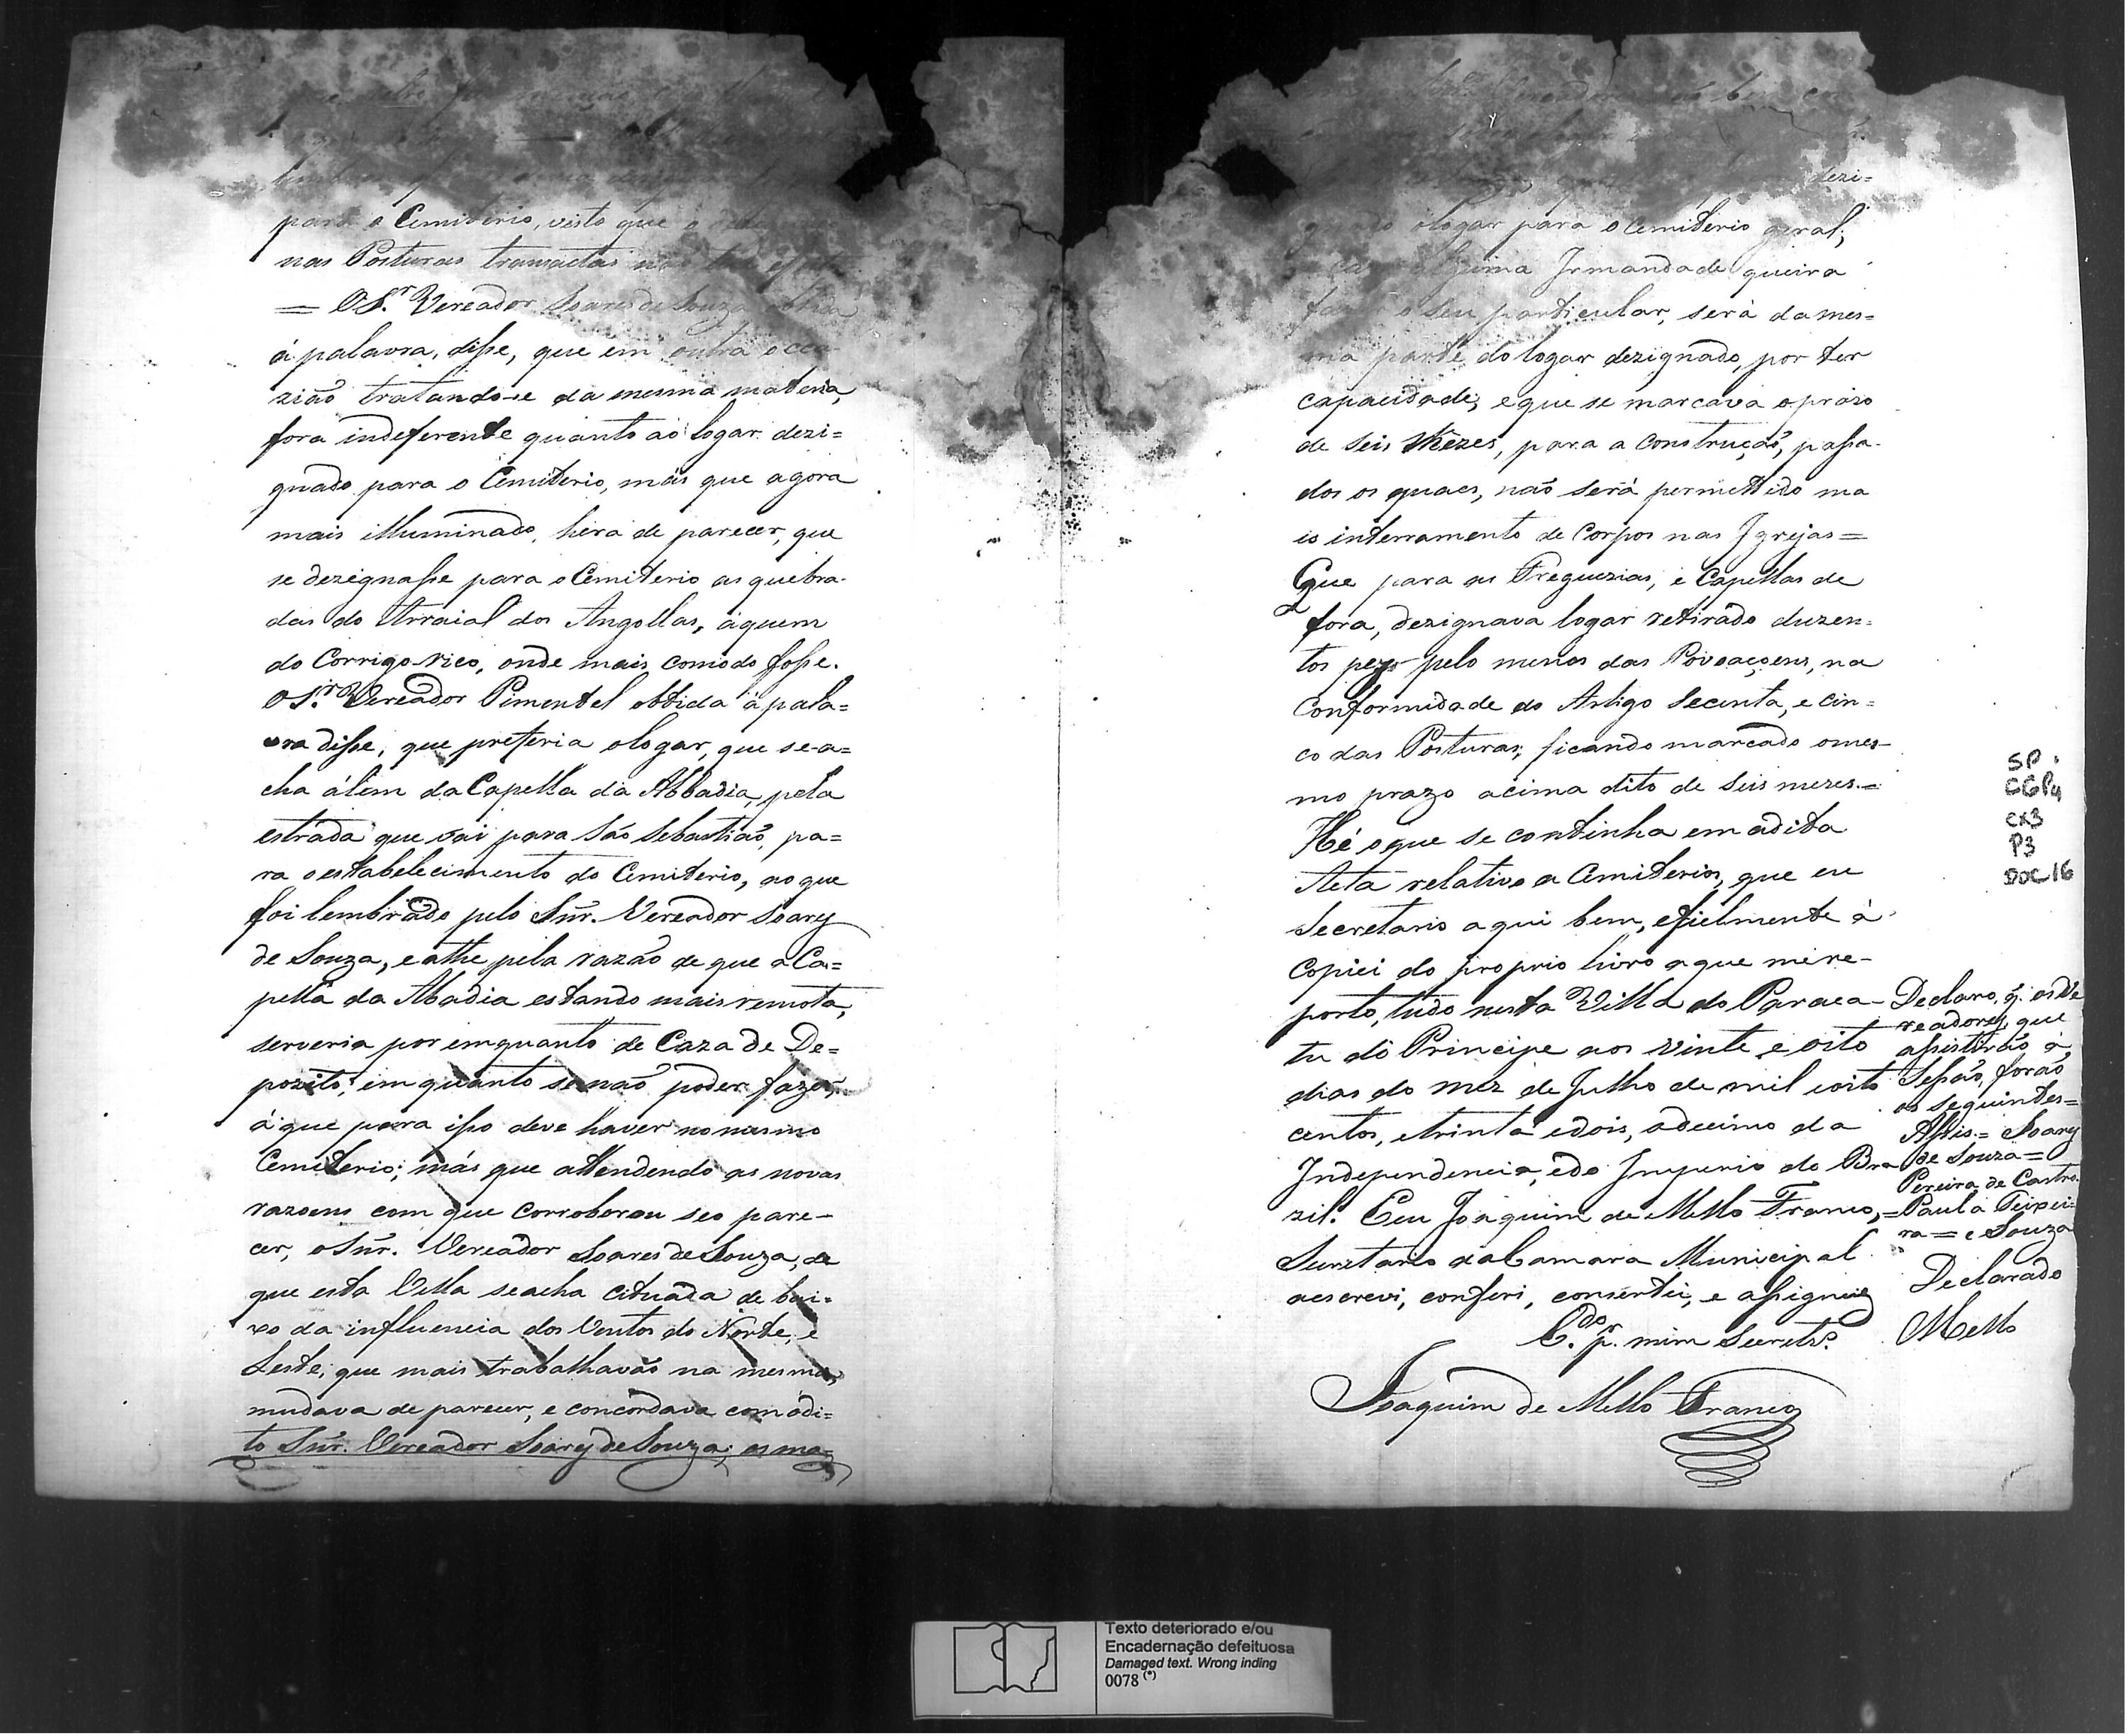 para o Cemiterio, visto que o
nas Posturas transactas
= O Sr. Vereador Soares de Souza
á palavra, disse, que em outra occa
zião tratando-se da mesma materia,
fora indeferente quanto ao logar dezi=
gnado para o Cemiterio, más que agora
mais illuminado, hera de parecer, que
se dezignasse para o Cemiterio as quebra-
das do Arraial dos Angollas, áquem
do Corrigo rico, onde mais comodo fosse.
O Sr. Vereador Pimentel obtida á pala=
vra disse, que preferia o logar, que se a=
cha álem da Capella da Abbadia, pela
estrada que vai para São Sebastião, pa=
ra o estabelecimento do Cemiterio, ao que
foi lembrado pelo Snr. Vereador Soares
de Souza, e athe pela razão de que a Ca=
pella da Abadia estando mais remota,
serveria por emquanto de Caza de De=
pozito, em quanto se não poder fazer,
á que para isso deve haver no mesmo
Cemiterio; más que attendendo as novas
razoens com que corroborou seo pare-
cer, o Snr. Vereador Soares de Souza, de
que esta Villa se acha cituada de bai=
xo da influencia dos Ventos do Norte, e
Leste, que mais trabalhavão na mesma,
mudava de parecer, e concordava com o di=
to Snr. Vereador Soares de Souza; as ma=
dezi=
o logar para o Cemiterio geral;
alguma Irmandade queira
o seu particular, será da mes=
ma parte do logar dezignado, por ter
capacidade; e que se marcava o prazo
de seis Mezes, para a construção, passa-
dos os quaes, não será permettido ma
is interramento de Corpos nas Igrejas=
Que para as Freguezias, e Capellas de
fora, dezignava logar retirado duzen=
tos pez pelo menos das Povoaçoens, na
Conformidade do Artigo Secenta, e cin=
co das Posturas; ficando marcado o mes-
mo prazo acima dito de seis mezes.=
Hé o que se continha em a dita
Acta relativo a Cemiterios, que eu
Secretario aqui bem, e fielmente á
Copiei do proprio livro a que me re-
porto, tudo nesta Villa do Paraca-
tu do Principe aos vinte e oito
dias do mez de Julho de mil e oito
centos, e trinta e dois, o decimo da
Independencia, e do Imperio do Bra
zil. Eeu Joaquim de Mello Franco,
Secretario da Camara Municipal
a escrevi, conferi, consertei, e assignei
C.do p.r mim Secretr.o
Joaquim de Mello Franco
Declaro, q. os Ve
readores, que
assistirão á
Sessão, forão
os seguintes=
Assis= Soares
de Souza=
Pereira de Castro
=Paula Teixei=
ra= e Souza
Declarado
Mello
SP
CGP4
CX3
P3
DOC16
Texto deteriorado e/ou
Encadernação defeituosa
Damaged text. Wrong inding
0078 (*)